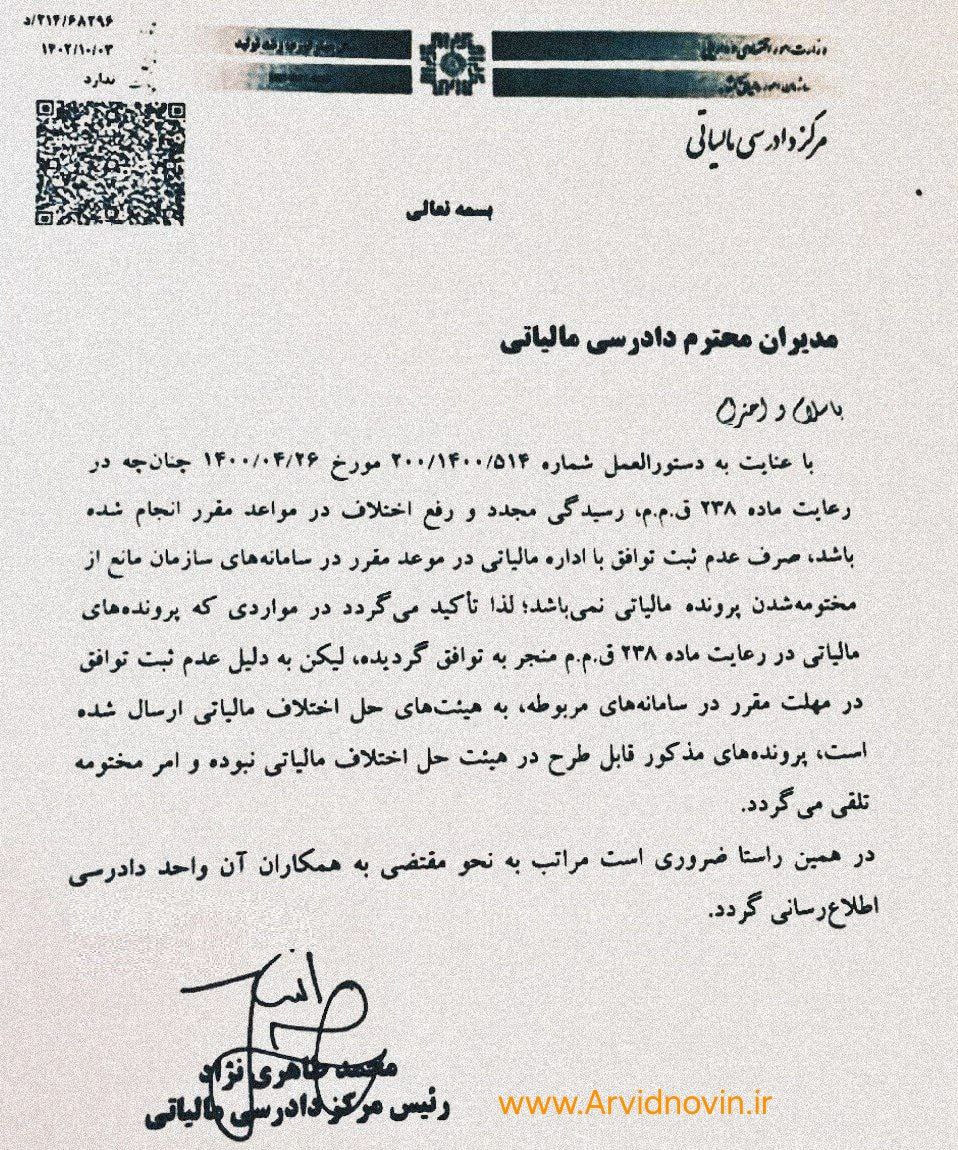 ۲۱۴/۶۸۲۹۶/د
۱۴۰۲/۱۰/۰۳
ندارد
مرکز دادرسی مالیاتی
بسمه تعالی
مدیران محترم دادرسی مالیاتی
با سلام و احترام
با عنایت به دستورالعمل شماره ۲۰۰/۱۴۰۰/۵۱۴ مورخ ۱۴۰۰/۰۴/۲۶ چنان‌چه در
رعایت ماده ۲۳۸ ق.م.م، رسیدگی مجدد و رفع اختلاف در مواعد مقرر انجام شده
باشد، صرف عدم ثبت توافق با اداره مالیاتی در موعد مقرر در سامانه‌های سازمان مانع از
مختومه‌شدن پرونده مالیاتی نمی‌باشد؛ لذا تأکید می‌گردد در مواردی که پرونده‌های
مالیاتی در رعایت ماده ۲۳۸ ق.م.م منجر به توافق گردیده، لیکن به دلیل عدم ثبت توافق
در مهلت مقرر در سامانه‌های مربوطه، به هیئت‌های حل اختلاف مالیاتی ارسال شده
است، پرونده‌های مذکور قابل طرح در هیئت حل اختلاف مالیاتی نبوده و امر مختومه
تلقی می‌گردد.
در همین راستا ضروری است مراتب به نحو مقتضی به همکاران آن واحد دادرسی
اطلاع‌رسانی گردد.
محمد طاهری نژاد
رئیس مرکز دادرسی مالیاتی
www.Arvidnovin.ir